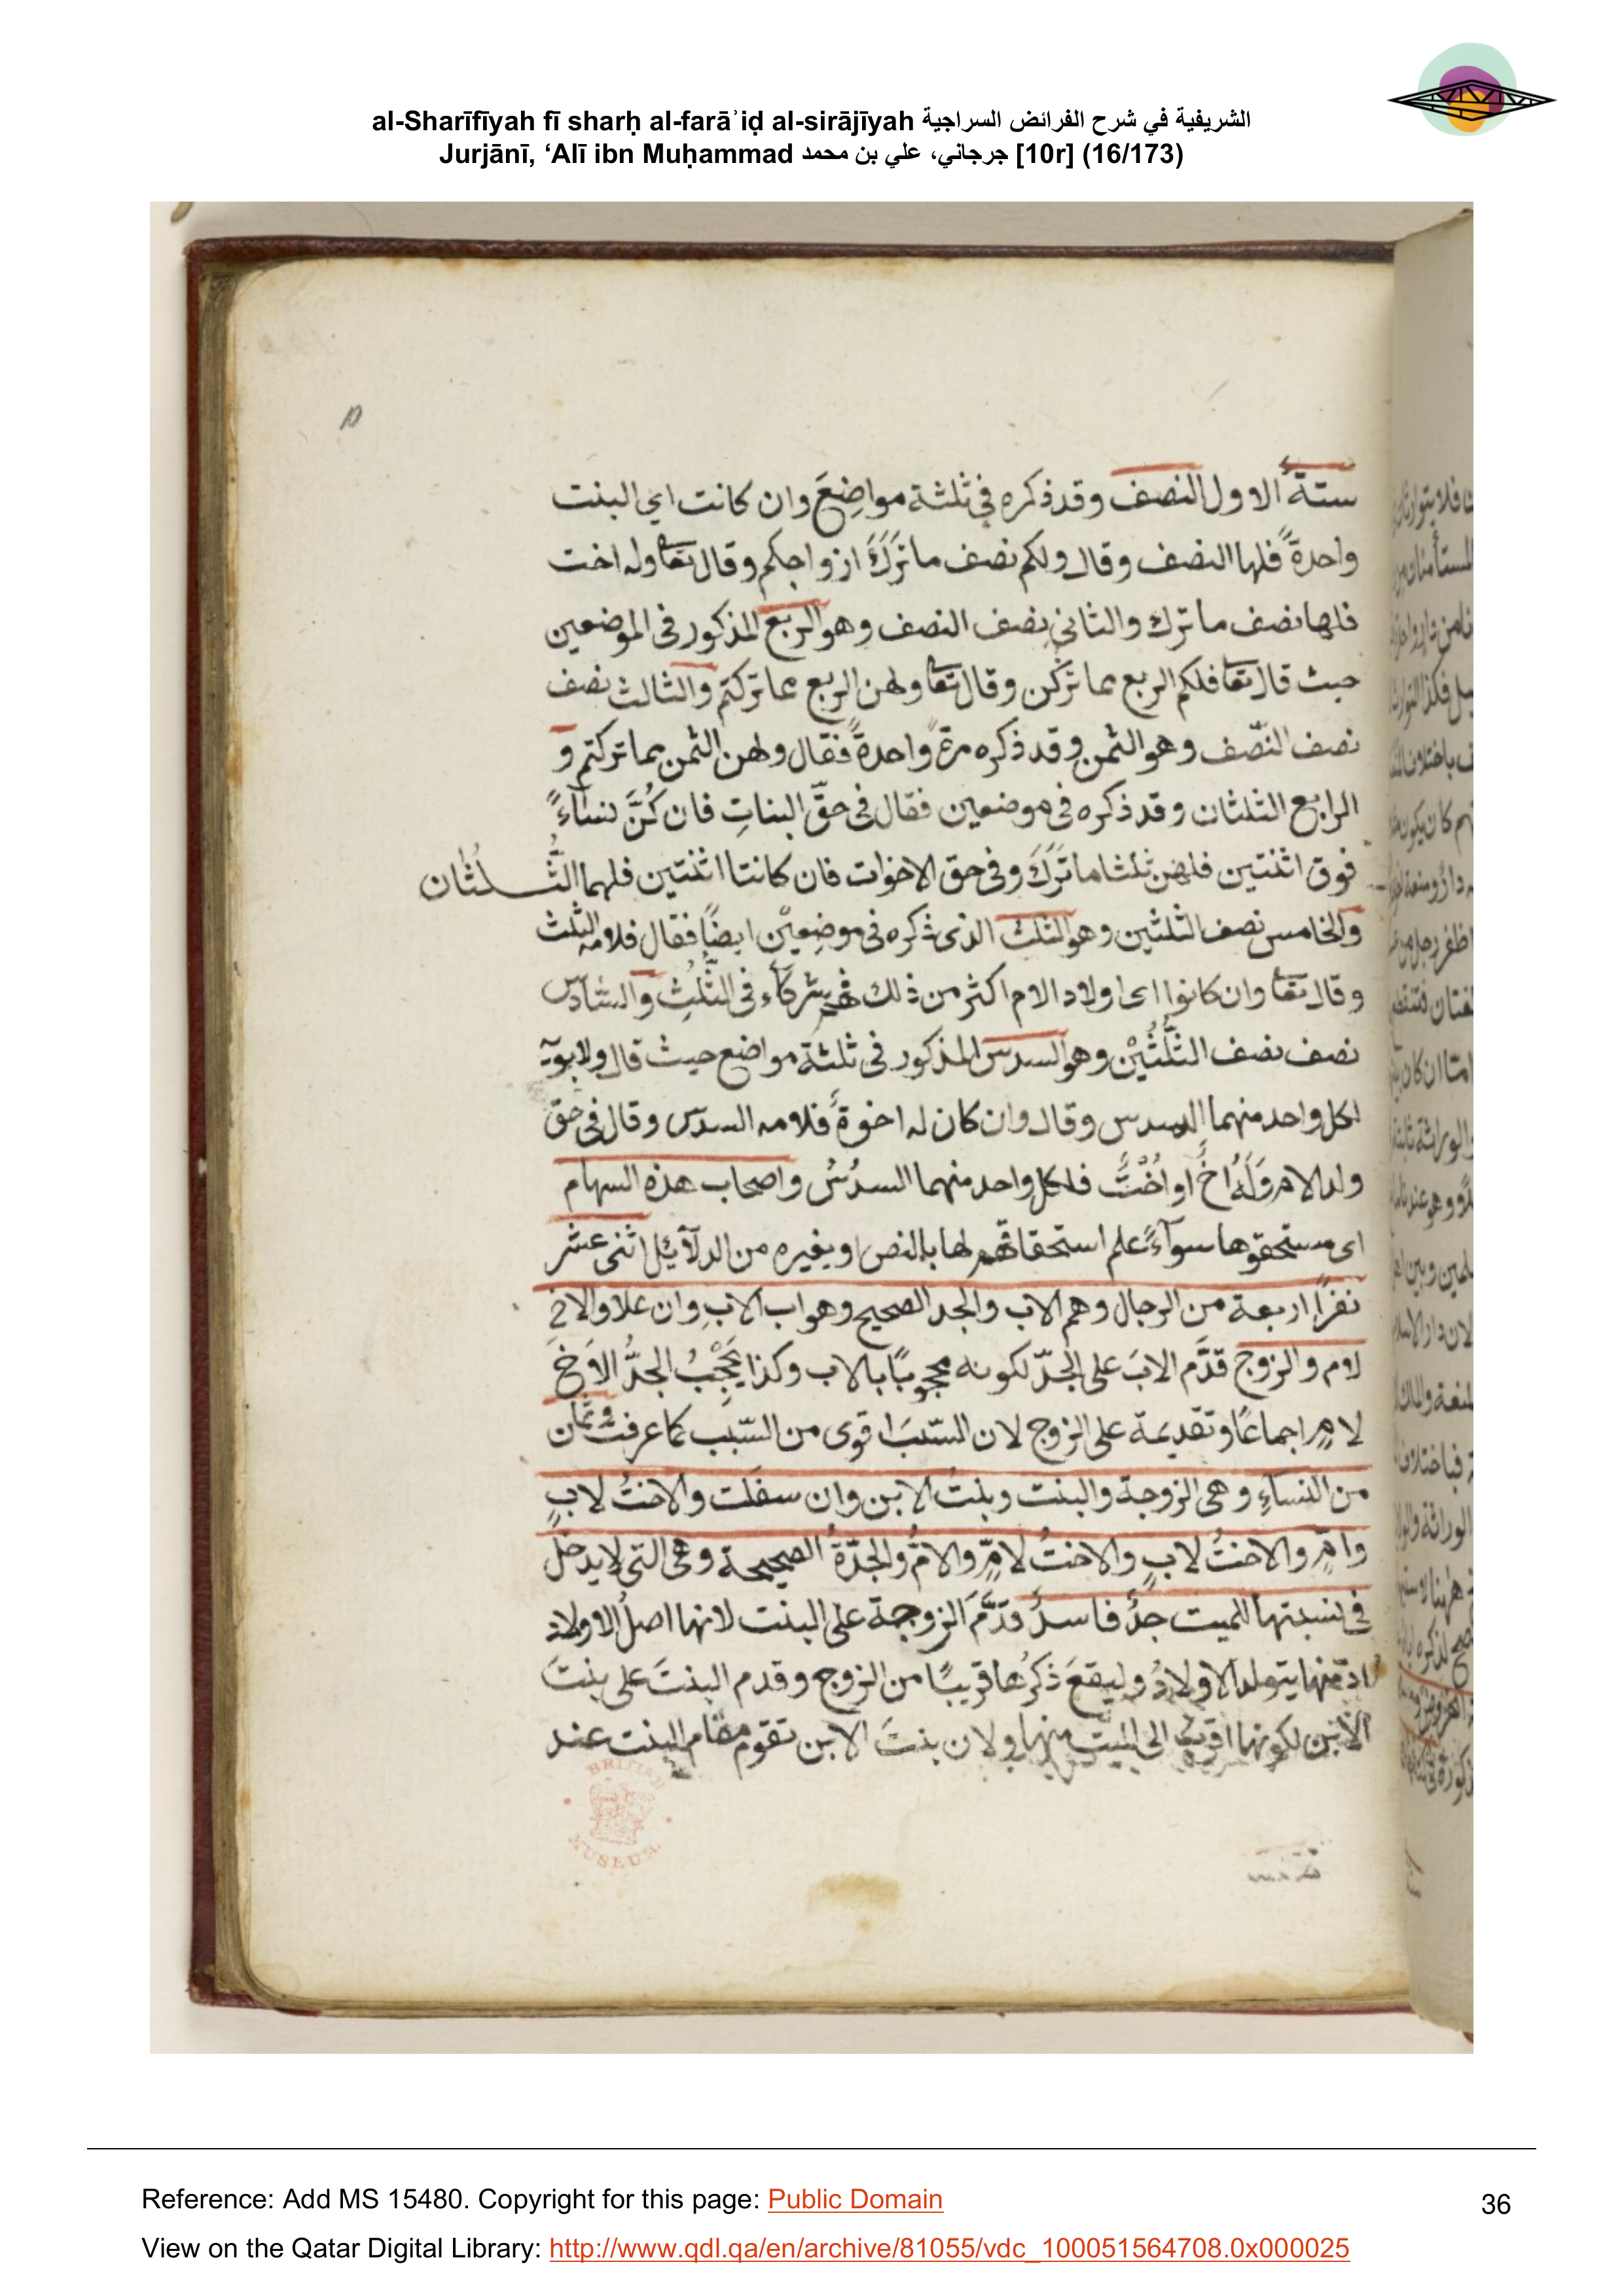 al-Sharīfīyah fī sharḥ al-farāʾiḍ al-sirājīyah الشريفية في شرح الفرائض السراجية
Jurjānī, ‘Alī ibn Muḥammad جرجاني، علي بن محمد [10r] (16/173)
10
ستةٌ الاول النصف وقد ذكره في ثلثة مواضِعَ وان كانت اي البنت
واحدةً فلها النصف وقال ولكم نصف ما تَرَكَ ازواجكم وقال تعا وله اخت
فلها نصف ما ترك والثاني نصف النصف وهو الربع المذكور فى الموضعين
حيث قال تعا فلكم الربع مما تركن وقال تعا ولهن الربع مما تركتم والثالث نصف
نصف النصّف وهو الثمن وقد ذكره مرة واحدةً فقال ولهن الثمن مما تركتم و
الرابع الثلثان وقد ذكره فى موضعين فقال فى حقّ البناتِ فان كُنَّ نساءً
فوق اثنتين فلهن ثلثا ما تَرَكَ وفى حق الاخوات فان كانتا اثنتين فلهما الثُّلُثان
والخامس نصف الثلثين وهو الثلث الذى ذكره فى موضعين ايضًا فقال فلامه الثلث
وقال تعا وان كانوا اى اولاد الام اكثر من ذلك فهم شركآء فى الثُّلُثِ والسَّادس
نصف نصف الثُّلُثَيْن وهو السدس المذكور فى ثلثة مواضع حيث قال ولابويه
لكل واحد منهما السدس وقال وان كان له اخوةٌ فلامه السدس وقال فى حق
ولد الام وَلَهُ اخٌ او اُخْتٌ فلكل واحد منهما السدُسُ واصحاب هذه السهام
اى مستحقوها سوآءً علم استحقاقهم لها بالنص او بغيره من الدلآئل اثنى عشر
نفرًا اربعة من الرجال وهم الاب والجد الصحيح وهو اب الابِ وان علا والاخ
لام والزوج قدَّم الابَ على الجدّ لكونه محجوبًا بالاب وكذا يَحْجُبُ الجدُّ الاَخَ
لامٍ اجماعًا وتقديمه على الزوج لان النسَبَ اقوى من السَّبَب كما عرفت وثمان
من النساءِ وهى الزوجة والبنت وبنتُ الابن وان سفلت والاختُ لابٍ
وامٍّ والاختُ لابٍ والاختُ لامٍّ والامُّ والجدّةُ الصحيحة وهى التى لا يدخل
فى نسبتها للميت جدٌّ فاسدٌ قدَّمَ الزوجة على البنت لانها اصلُ الاولاد
اذ منها يتولد الاولادُ وليقعَ ذكرُها قريبًا من الزوج وقدم البنتَ على بنتَ
الابن لكونها اقرب الى الميت منها ولان بنتَ الابن تقوم مقام البنت عند
BRITISH
MUSEUM
Reference: Add MS 15480. Copyright for this page: Public Domain
36
View on the Qatar Digital Library: http://www.qdl.qa/en/archive/81055/vdc_100051564708.0x000025